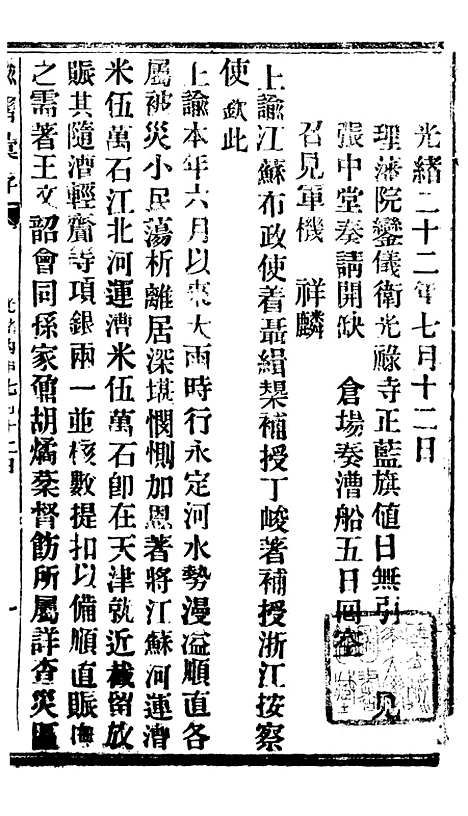 光緒二十二年七月十二日
理藩院鑾儀衛光祿寺正藍旗値日無引 見
張中堂奏請開缺 倉場奏漕船五日回空
召見軍機 祥麟
上諭江蘇布政使着聶緝槼補授丁峻著補授浙江按察
使欽此
上諭本年六月以來大雨時行永定河水勢漫溢順直各
屬被災小民蕩析離居深堪憫惻加恩著將江蘇河運漕
米伍萬石江北河運漕米伍萬石卽在天津就近截留放
賑其隨漕輕齎等項銀兩一並核數提扣以備順直賑
之需著王文韶會同孫家鼐胡燏棻督飭所屬詳查災區